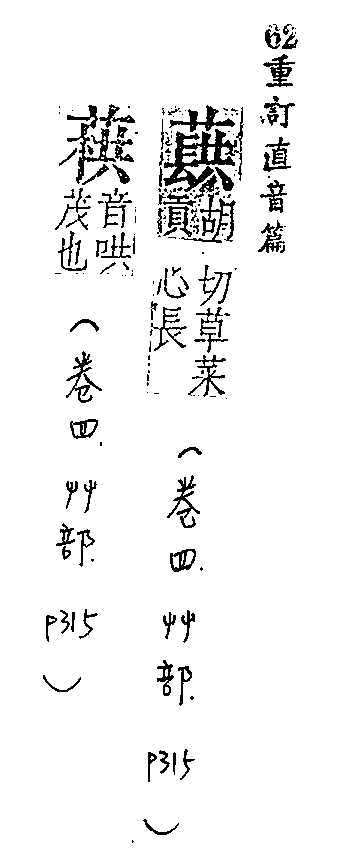 62重訂直音篇
蕻胡貢切草菜心長（卷四.艸部.P315）
音哄茂也（卷四.艸部.P315）